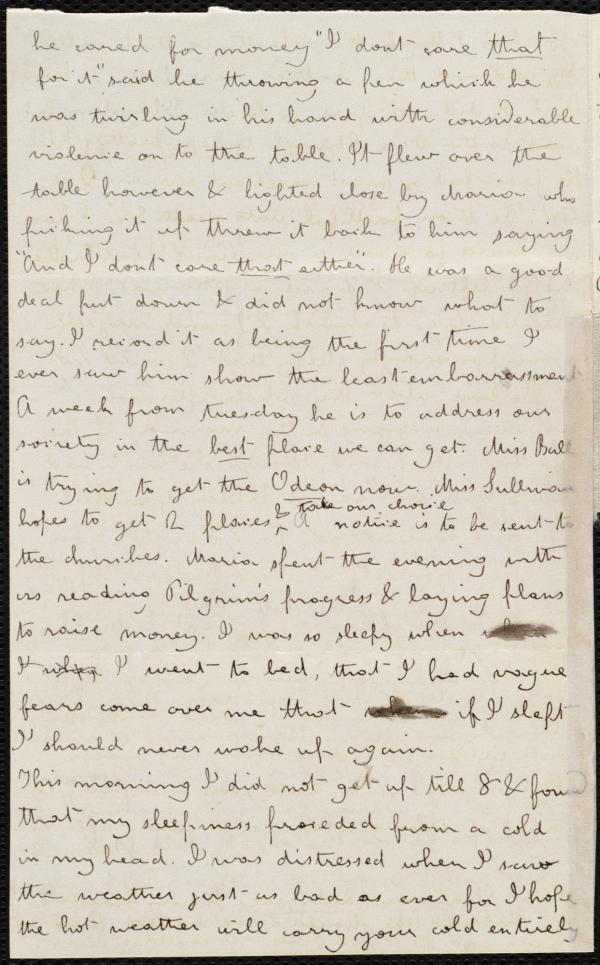 he cared for money "I dont care that
for it" said he throwing a pen which he
was twirling in his hand with considerable
violence on to the table. It flew over the
table however & lighted close by Maria who
picking it up threw it back to him saying
"And I dont care that either". He was a good
deal put down & did not know what to
say. I record it as being the first time I
ever saw him show the least embarrassment
A week from tuesday he is to address our
society in the best place we can get. Miss Ball
is trying to get the Odeon now. Miss Sullivan
hopes to get 2 places & take our choice A notice is to be sent to
the churches. Maria spent the evening with
us reading Pilgrim's progress & laying plans
to raise money. I was so sleepy when
I when I went to bed, that I had vague
fears come over me that if I slept
I should never wake up again.
This morning I did not get up till 8 & found
that my sleepiness proceded from a cold
in my head. I was distressed when I saw
the weather just as bad as ever for I hope
the hot weather will carry your cold entirely